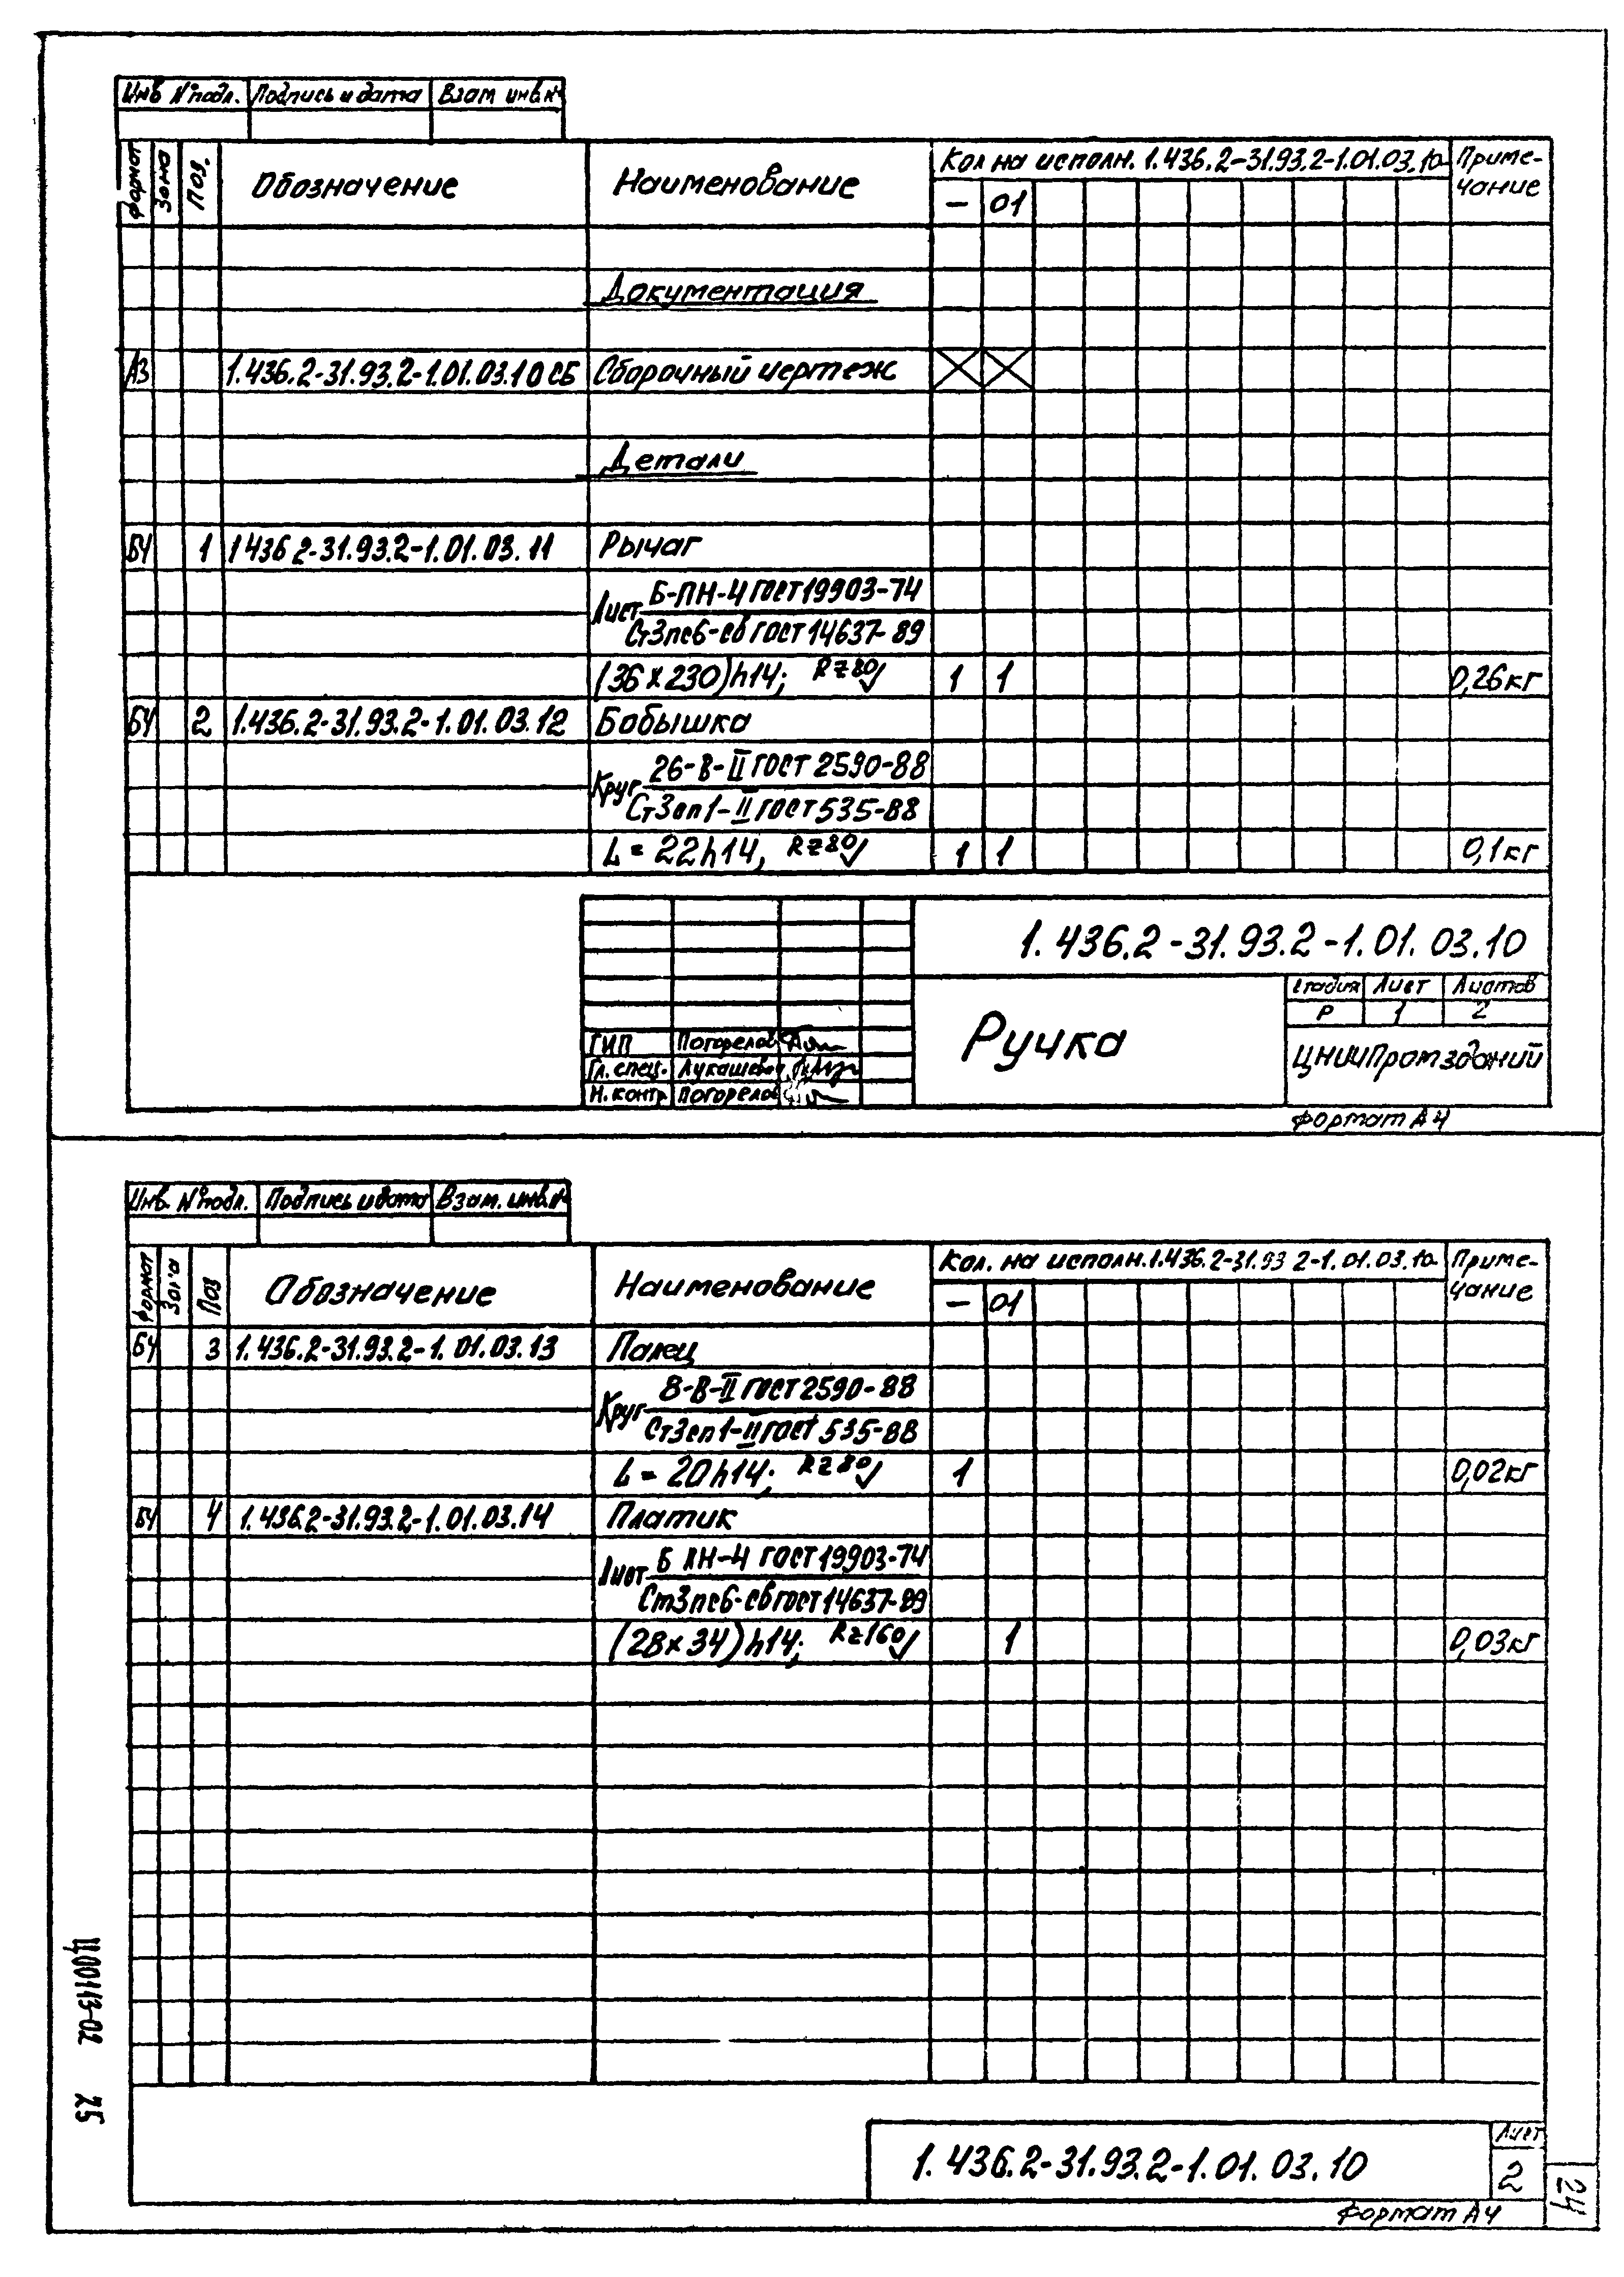 Инв. N°подл. Подпись и дата Взам инв.N°
Формат Зона Поз. Обозначение Наименование Кол на исполн. 1.436.2-31.93.2-1.01.03.10- Приме-
чание
— 01
Документация
А3 1.436.2-31.93.2-1.01.03.10 СБ Сборочный чертеж
Детали
БЧ 1 1 436 2-31.93.2-1.01.03.11 Рычаг
Лист Б-ПН-4 ГОСТ 19903-74
Ст3пс6-св ГОСТ 14637-89
(36×230)h14; Rz80 1 1 0,26кг
БЧ 2 1.436.2-31.93.2-1.01.03.12 Бобышка
Круг 26-В-II ГОСТ 2590-88
Ст3сп1-II ГОСТ 535-88
L = 22h14, Rz80 1 1 0,1кг
1.436.2-31.93.2-1.01.03.10
Ручка
Стадия Лист Листов
Р 1 2
ЦНИИПромзданий
ГИП Погорелов
Гл. спец. Лукашевич
Н. контр Погорелов
Формат А4
Инв. N°подл. Подпись и дата Взам. инв.N°
Формат Зона Поз Обозначение Наименование Кол. на исполн. 1.436.2-31.93 2-1.01.03.10- Приме-
чание
— 01
БЧ 3 1.436.2-31.93.2-1.01.03.13 Палец
Круг 8-В-II ГОСТ 2590-88
Ст3сп1-II ГОСТ 535-88
L = 20h14; Rz80 1 0,02кг
БЧ 4 1.436.2-31.93.2-1.01.03.14 Платик
Лист Б ПН-4 ГОСТ 19903-74
Ст3пс6-св ГОСТ 14637-89
(28×34)h14; Rz160 1 0,03кг
1.436.2-31.93.2-1.01.03.10
Лист
2
Формат А4
Ц00113-02 25
24